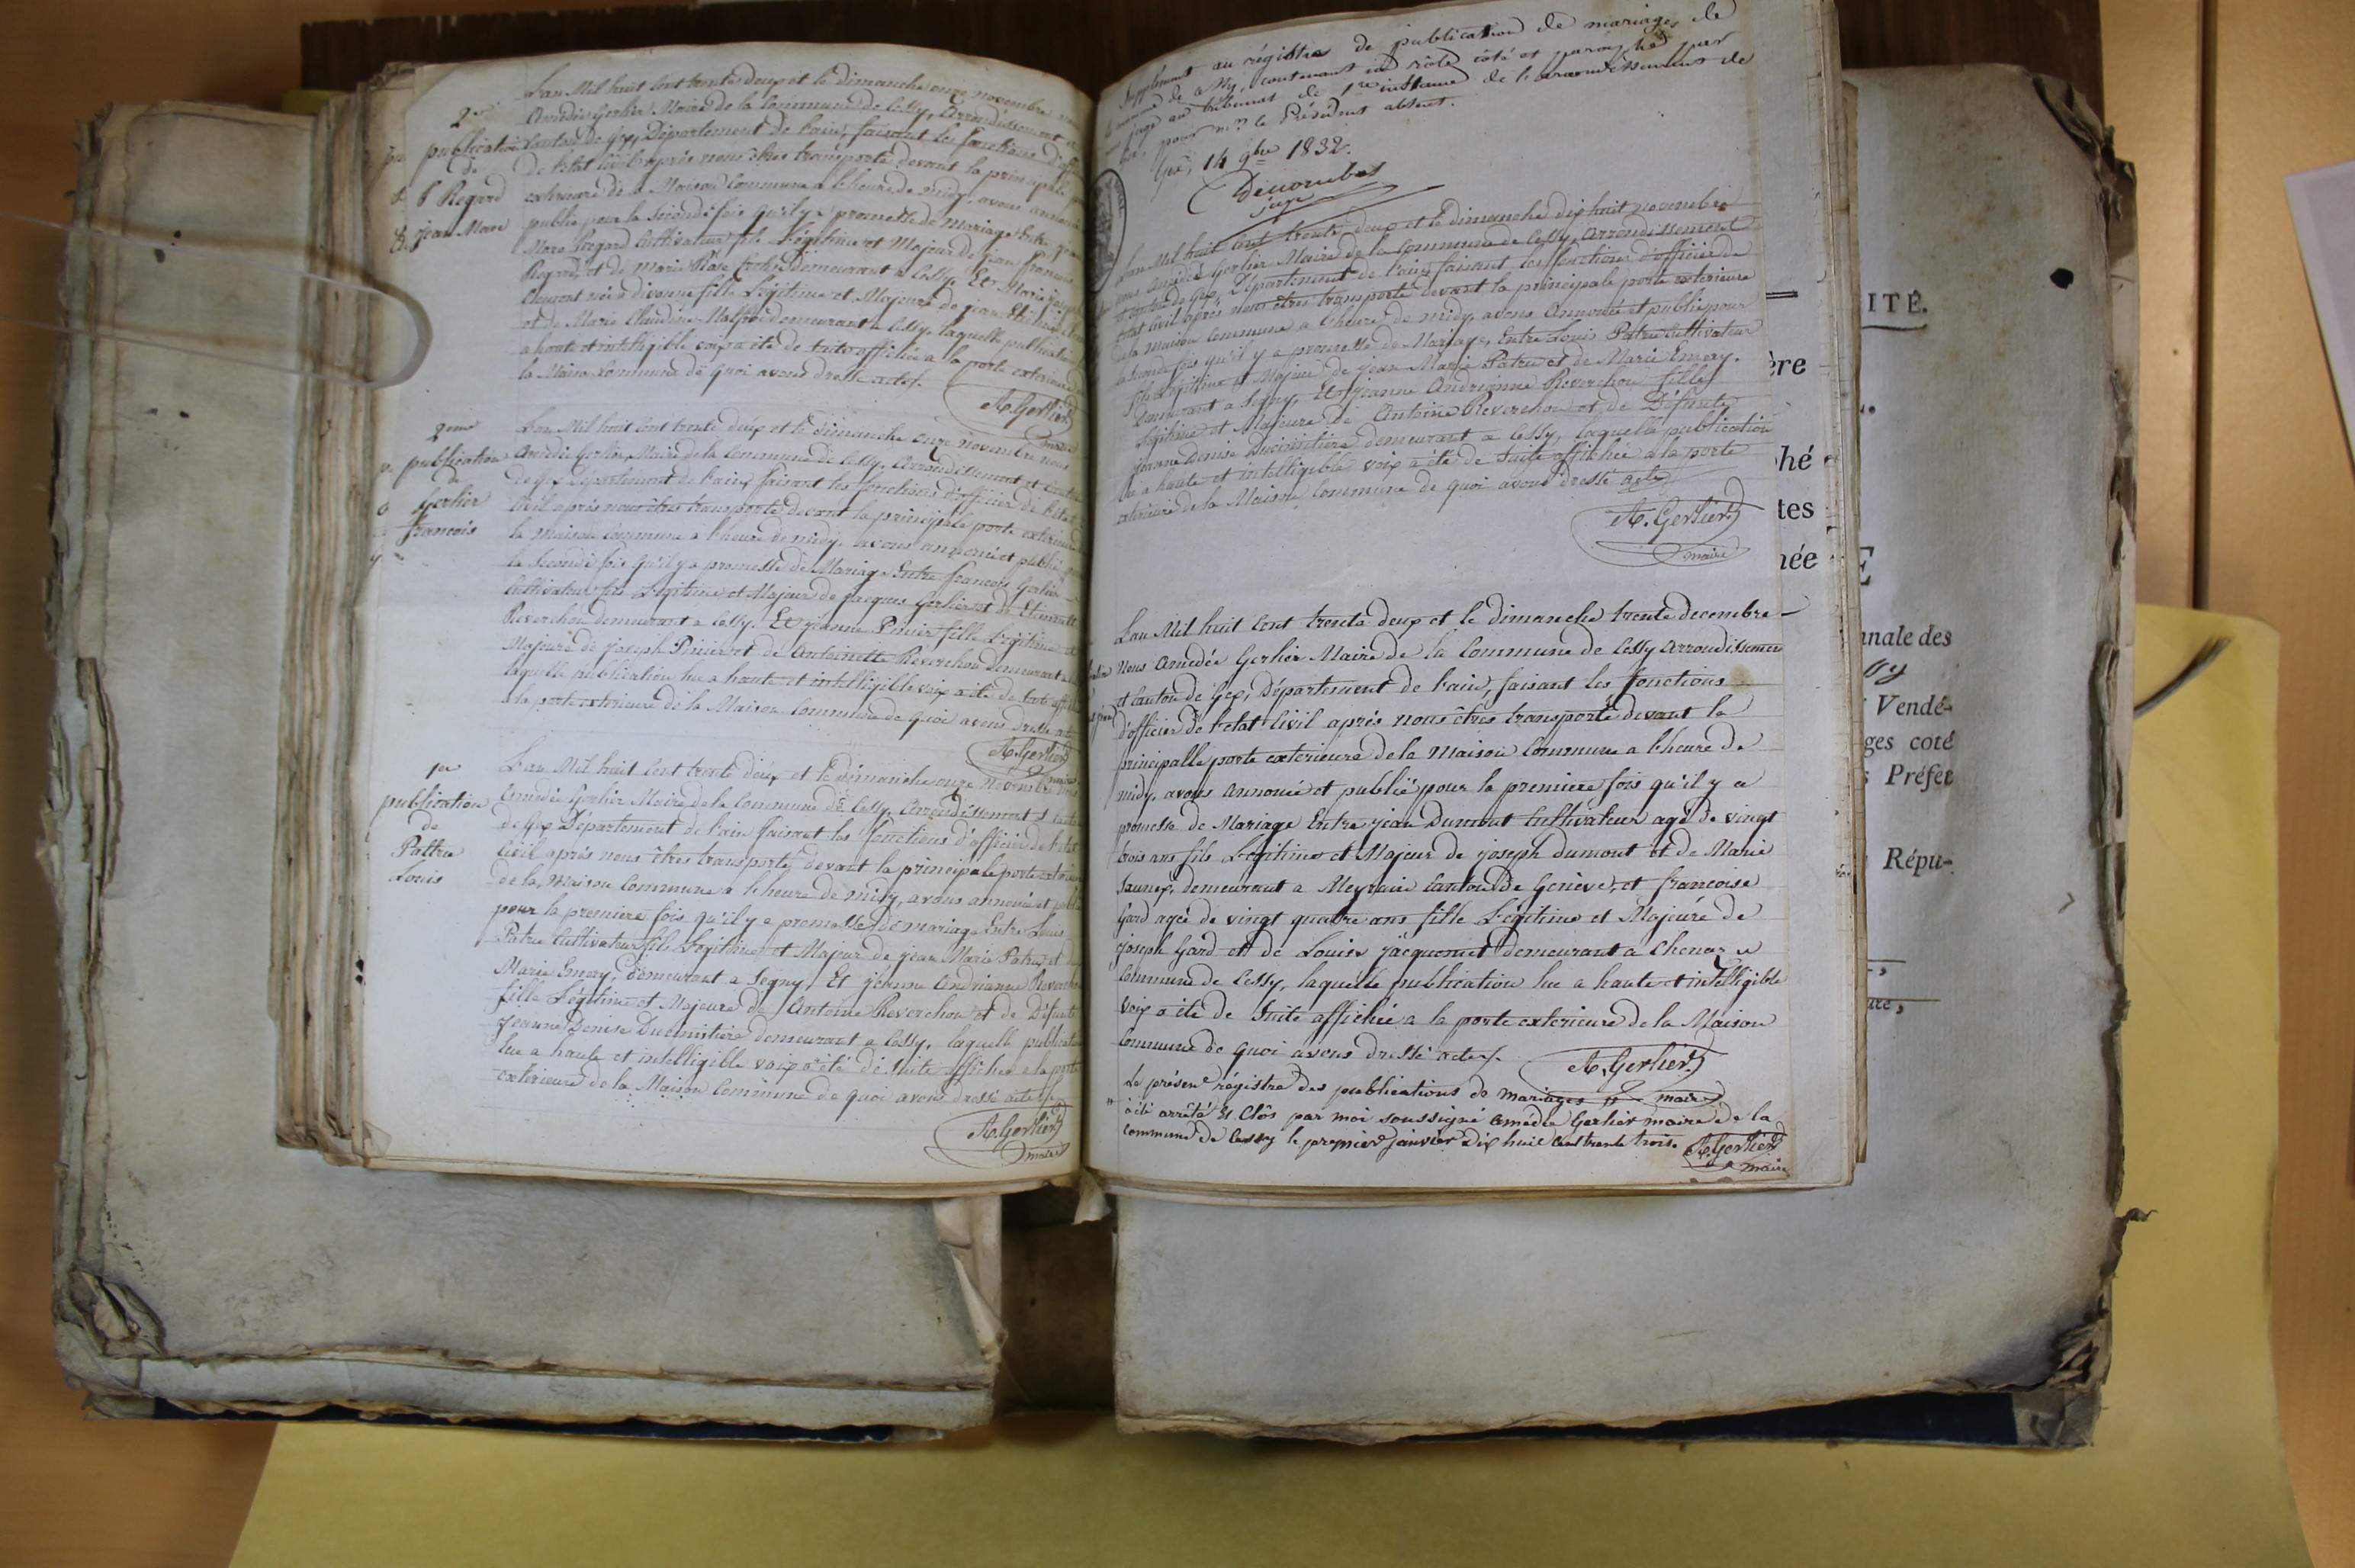 2e
publication
de
Regard
jean Marc
L'an Mil huit Cent trente deux et le dimanche onze novembre nous
Amédée Gerlier Maire de la Commune de Cessy, Arrondissement et
Canton de Gex, Département de l'ain, faisant les fonctions d'officier
de l'état Civil après nous êtres transporté devant la principale porte
exterieure de la Maison Commune a l'heure de midy, avons annoncé
publié pour la seconde fois qu'il y a promesse de Mariage Entre jean
Marc Regard Cultivateur fils Légitime et Majeur de jean françois
Regard et de Marie Rose demeurant a Cessy. Et Marie
Clement née a divonne fille Légitime et Majeure de jean
et de Marie Claudine demeurant a Cessy, laquelle publication
a haute et intelligible voix a été de suite affichée a la porte exterieure de
la Maison commune de quoi avons dressé acte.
A. Gerlier
maire
2eme
publication
de
Gerlier
francois
L'an Mil huit Cent trente deux et le dimanche onze novembre nous
Amédée Gerlier Maire de la Commune de Cessy, Arrondissement et Canton
de Gex Département de l'ain, faisant les fonctions d'officier de l'état
Civil après nous êtres transporté devant la principale porte exterieure de
la maison Commune a l'heure de midy, avons annoncé et publié pour
la seconde fois qu'il y a promesse de Mariage Entre francois Gerlier
Cultivateur fils Légitime et Majeur de jacques Gerlier et de
Reverchon demeurant a Cessy. Et jeanne Pinier fille Légitime et
Majeure de joseph Pinier et de Antoinette Reverchon demeurant a
laquelle publication lue a haute et intelligible voix a été de suite affichée
a la porte exterieure de la Maison Commune de quoi avons dressé acte
A. Gerlier
maire
1ere
publication
de
Pattru
Louis
L'an Mil huit Cent trente deux et le dimanche onze Novembre nous
Amédée Gerlier Maire de la Commune de Cessy, Arrondissement et Canton
de Gex Département de l'ain faisant les fonctions d'officier de l'état
Civil après nous êtres transporté devant la principale porte exterieure
de la Maison Commune a l'heure de midy, avons annoncé et publié
pour la premiere fois qu'il y a promesse de mariage Entre Louis
Patru Cultivateur fils Légitime et Majeur de jean Marie Patru et de
Marie Emery, demeurant a Segny. Et jeanne Andrianne Reverchon
fille Légitime et Majeure de Antoine Reverchon et de Défunte
Jeanne Denise Ducimitière demeurant a Cessy, laquelle publication
lue a haute et intelligible voix a été de suite affichée a la porte
exterieure de la Maison Commune de quoi avons dressé acte
A. Gerlier
maire
Supplement au régistre de publication de mariages de
la commune de Cessy, contenant un rôle côté et paraphé par
juge au tribunal de 1re instance de l'arrondissement de
Gex, pour mr le Président absent.
Gex, 14 9bre 1832.
juge
L'an Mil huit Cent trente deux et le dimanche dix huit novembre
nous Amédée Gerlier Maire de la Commune de Cessy, Arrondissement
et Canton de Gex, Département de l'ain, faisant les fonctions d'officier de
l'état Civil après nous êtres transporté devant la principale porte exterieure
de la Maison Commune a l'heure de midy, avons Annoncé et publié pour
la seconde fois qu'il y a promesse de Mariage, Entre Louis Patru Cultivateur
fils Légitime et Majeur de jean Marie Patru et de Marie Emery.
Demeurant a Segny, Et jeanne Andrianne Reverchon fille
Légitime et Majeure de Antoine Reverchon et de Défunte
jeanne Denise Ducimitière demeurant a Cessy, laquelle publication
lue a haute et intelligible voix a été de suite affichée a la porte
exterieure de la Maison Commune de quoi avons dressé acte
A. Gerlier
maire
L'an Mil huit Cent trente deux et le dimanche trente decembre
Nous Amedée Gerlier Maire de la Commune de Cessy Arrondissement
et Canton de Gex, Département de l'ain, faisant les fonctions
d'officier de l'etat Civil après nous êtres transporté devant la
principalle porte exterieure de la Maison Commune a l'heure de
midy, avons Annoncé et publié pour la premiere fois qu'il y a
promesse de Mariage Entre jean Dumont Cultivateur agé de vingt
trois ans fils Légitime et Majeur de joseph Dumont et de Marie
Jaunex, demeurant a Meyrain Canton de Genève, et francoise
Gard agée de vingt quatre ans fille Légitime et Majeure de
joseph Gard et de Louise jacquemet demeurant a Chenaz
Commune de Cessy, laquelle publication lue a haute et intelligible
voix a été de Suite affichée a la porte exterieure de la Maison
Commune de quoi avons dressé acte.
A. Gerlier
maire
Le présent régistre des publications de mariages
a été arrêté et Clôs par moi soussigné Amédée Gerlier maire de la
commune de Cessy le premier janvier dix huit Cent trente trois.
A. Gerlier
maire
ITÉ.
ère
hé
tes
née
E
nnale des
Vendé-
ges coté
Préfet
Répu-